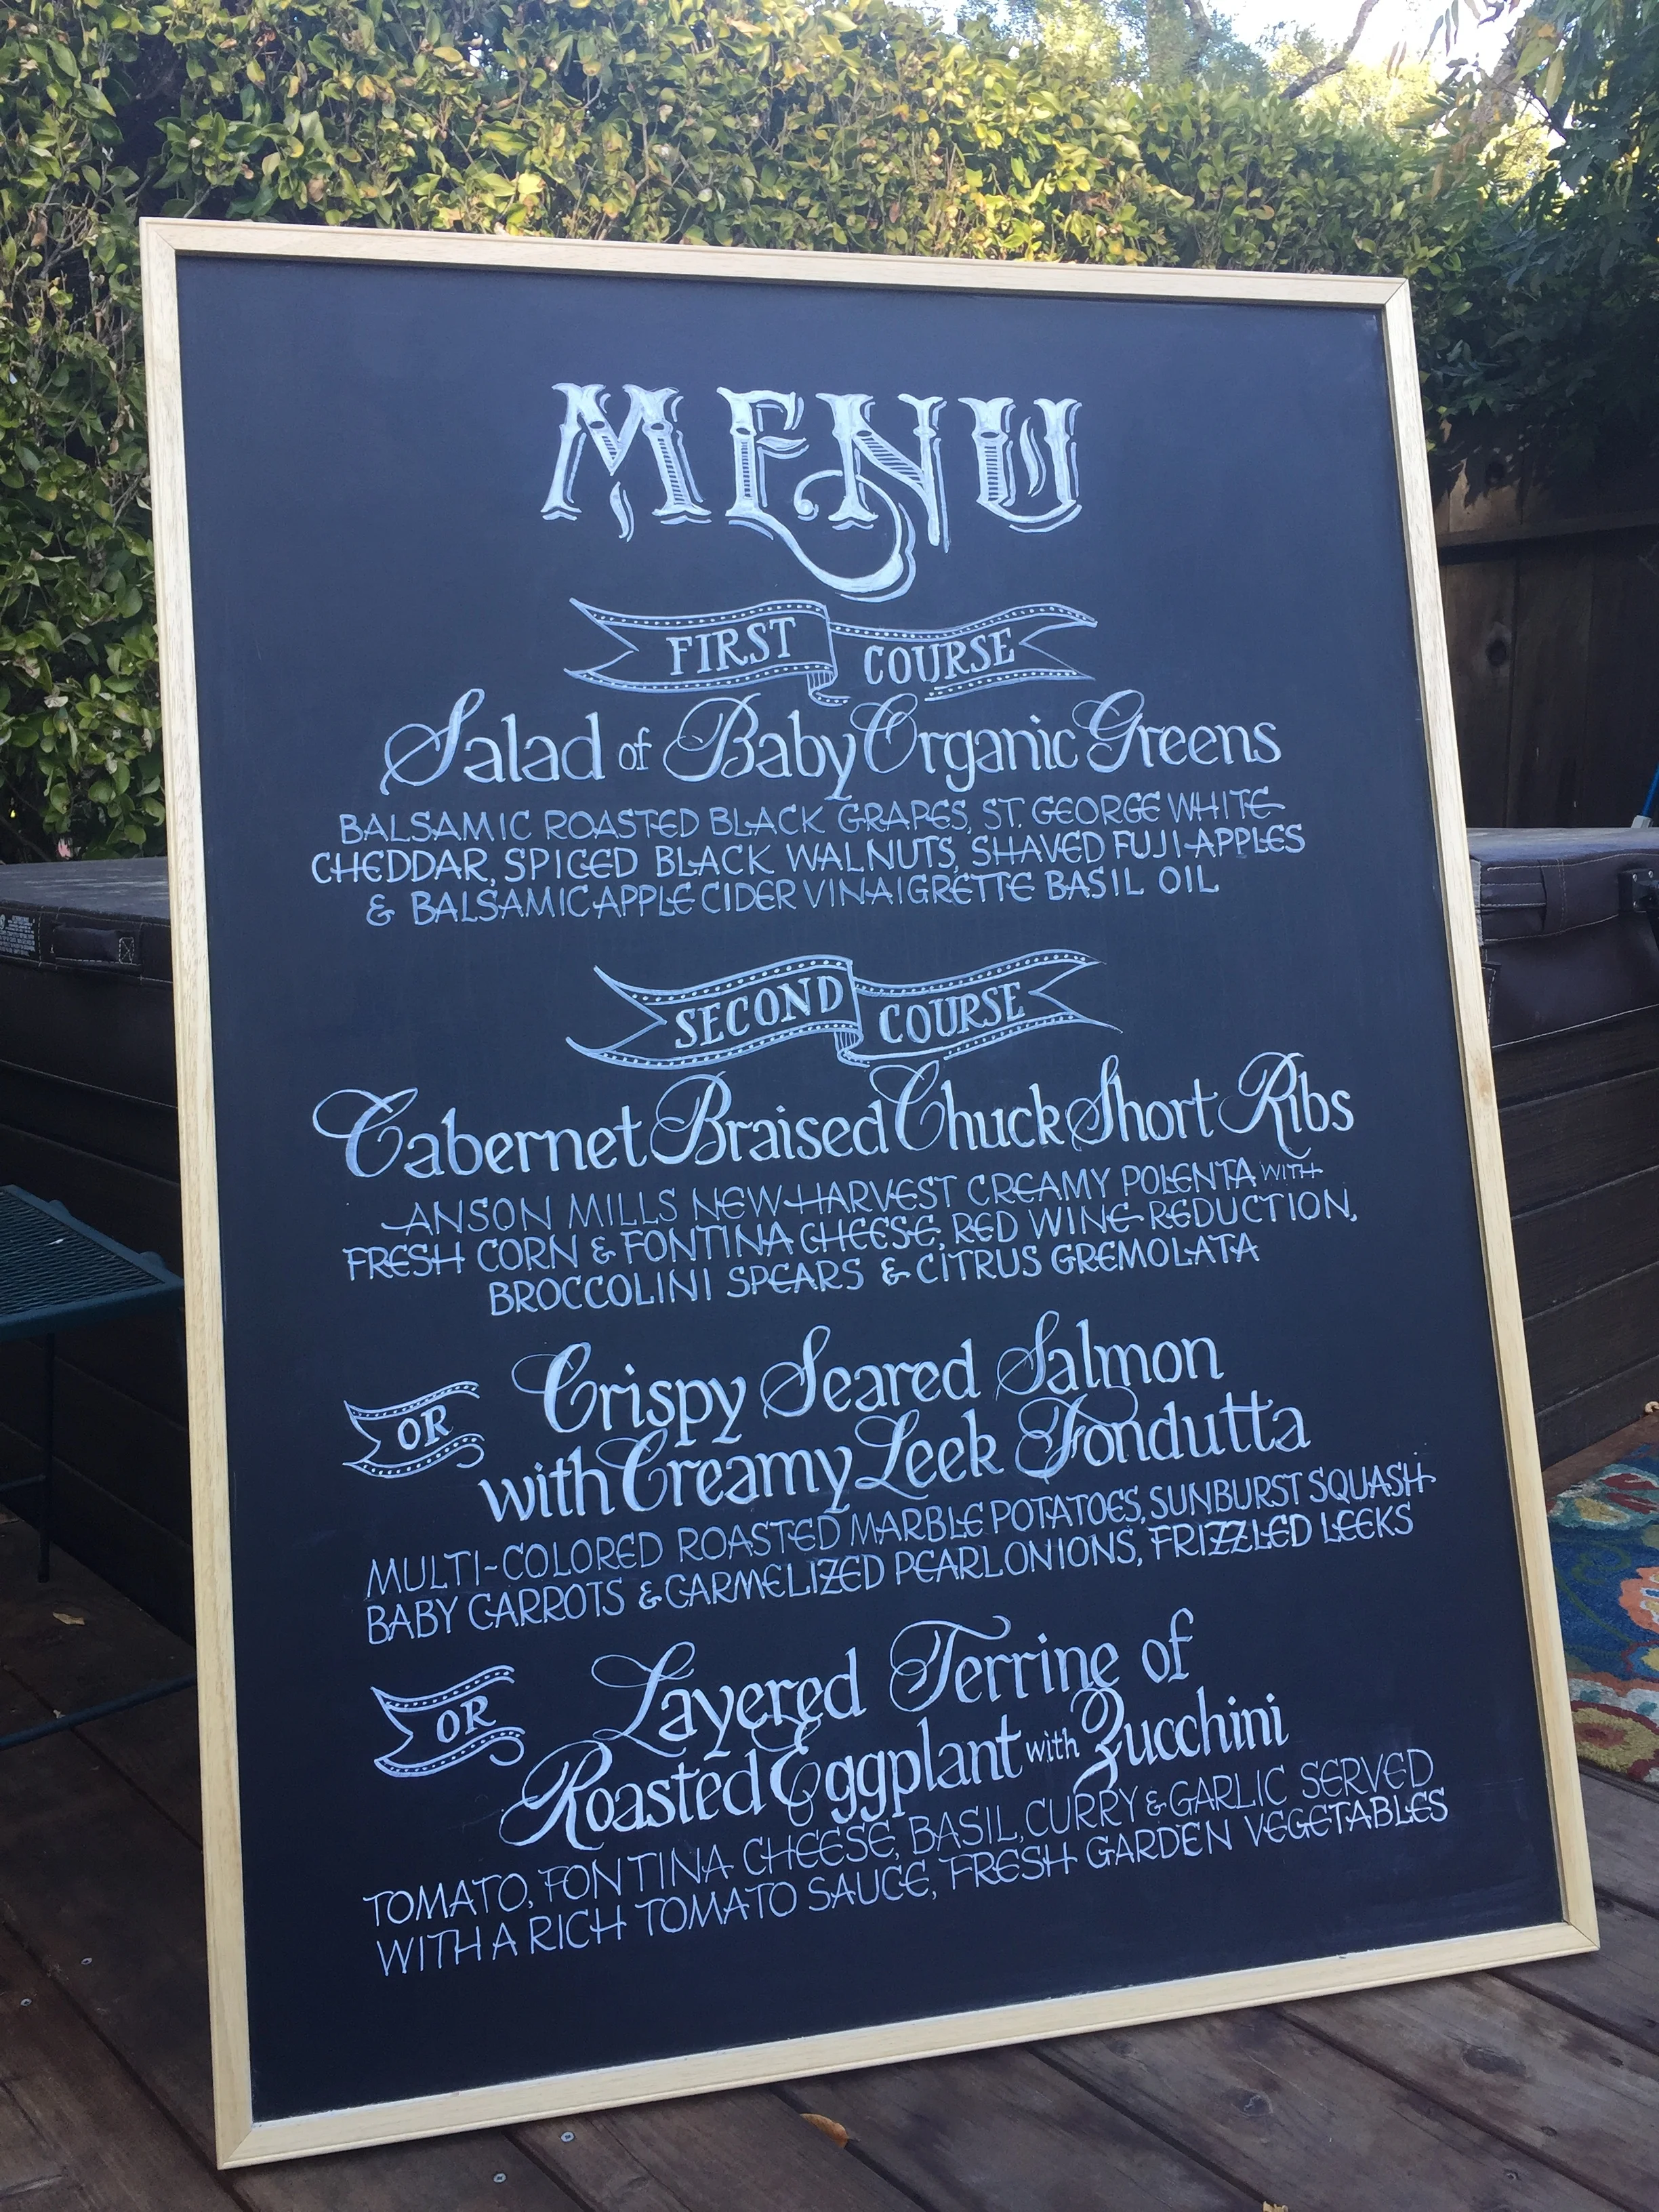 MENU
FIRST COURSE
Salad of Baby Organic Greens
BALSAMIC ROASTED BLACK GRAPES, ST. GEORGE WHITE
CHEDDAR, SPICED BLACK WALNUTS, SHAVED FUJI APPLES
& BALSAMIC APPLE CIDER VINAIGRETTE BASIL OIL
SECOND COURSE
Cabernet Braised Chuck Short Ribs
ANSON MILLS NEW HARVEST CREAMY POLENTA WITH
FRESH CORN & FONTINA CHEESE, RED WINE REDUCTION,
BROCCOLINI SPEARS & CITRUS GREMOLATA
OR
Crispy Seared Salmon
with Creamy Leek Fondutta
MULTI-COLORED ROASTED MARBLE POTATOES, SUNBURST SQUASH
BABY CARROTS & CARMELIZED PEARL ONIONS, FRIZZLED LEEKS
OR
Layered Terrine of
Roasted Eggplant with Zucchini
TOMATO, FONTINA CHEESE, BASIL, CURRY & GARLIC SERVED
WITH A RICH TOMATO SAUCE, FRESH GARDEN VEGETABLES